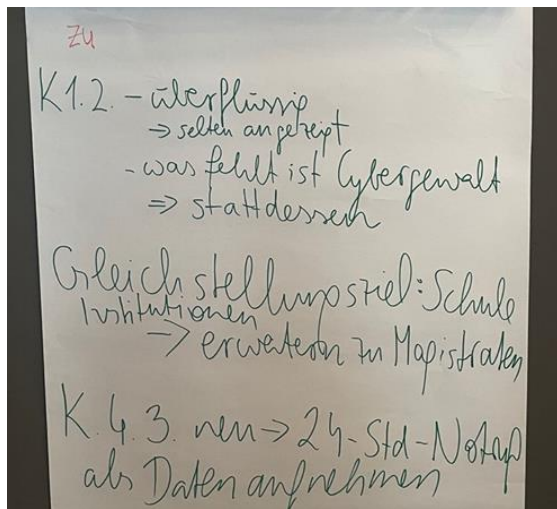 zu
K1.2. - überflüssig
→ selten angezeigt
- was fehlt ist Cybergewalt
⇒ stattdessen
Gleichstellungsziel: Schule
Institutionen
→ erweitern zu Magistraten
K.4.3. neu → 24-Std-Notruf
als Daten aufnehmen